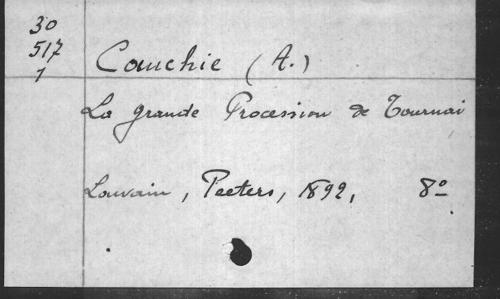 30
517
1
Cauchie (A.)
La grande Procession de Tournai
Louvain, Peeters, 1892, 8º